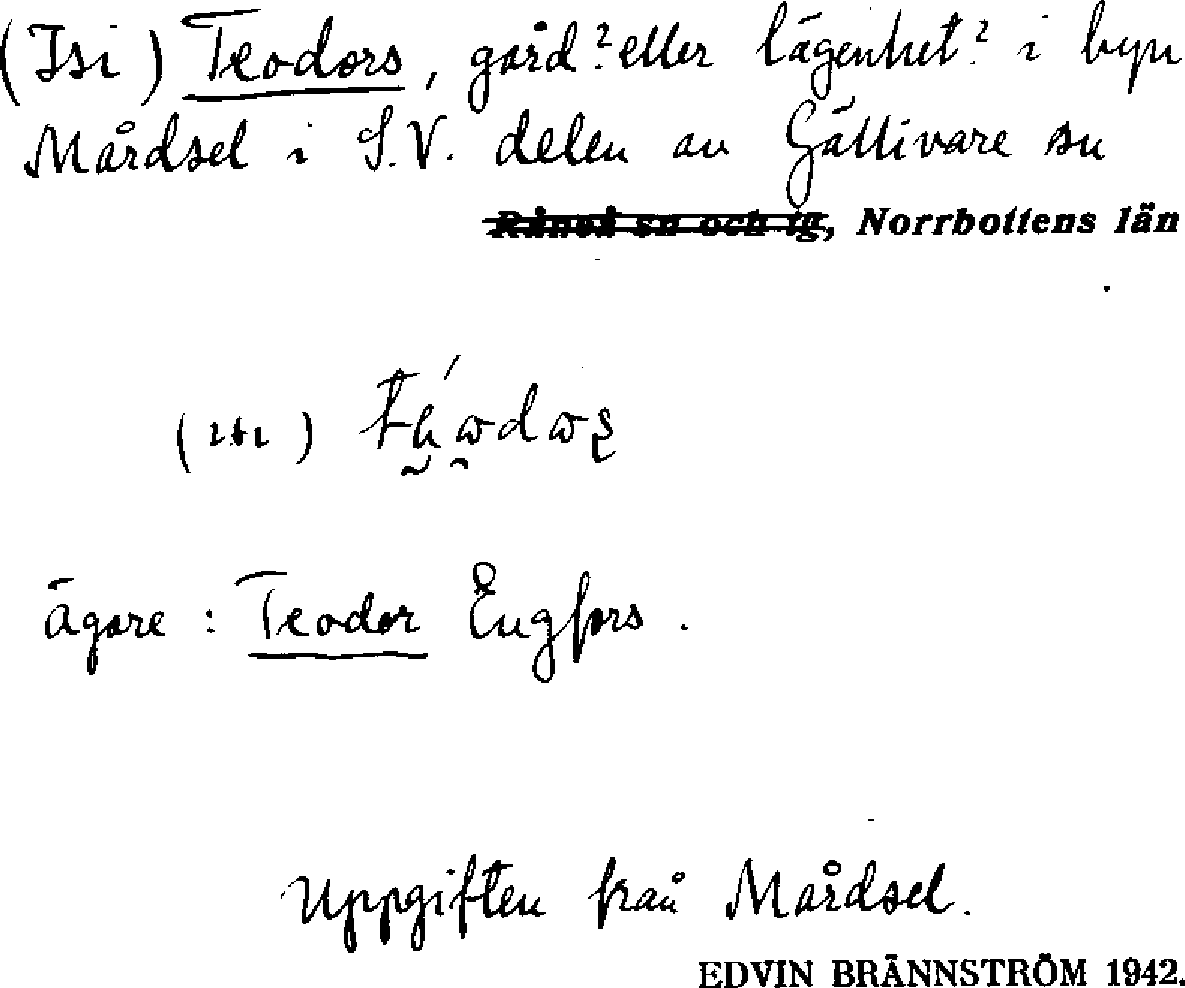 (Isi) Teodors, gård? eller lägenhet? i byn
Mårdsel i S.V. delen av Gällivare sn
Råneå sn och tg, Norrbottens län
(isi)
ägare: Teodor Engfors.
Uppgiften från Mårdsel.
EDVIN BRÄNNSTRÖM 1942.